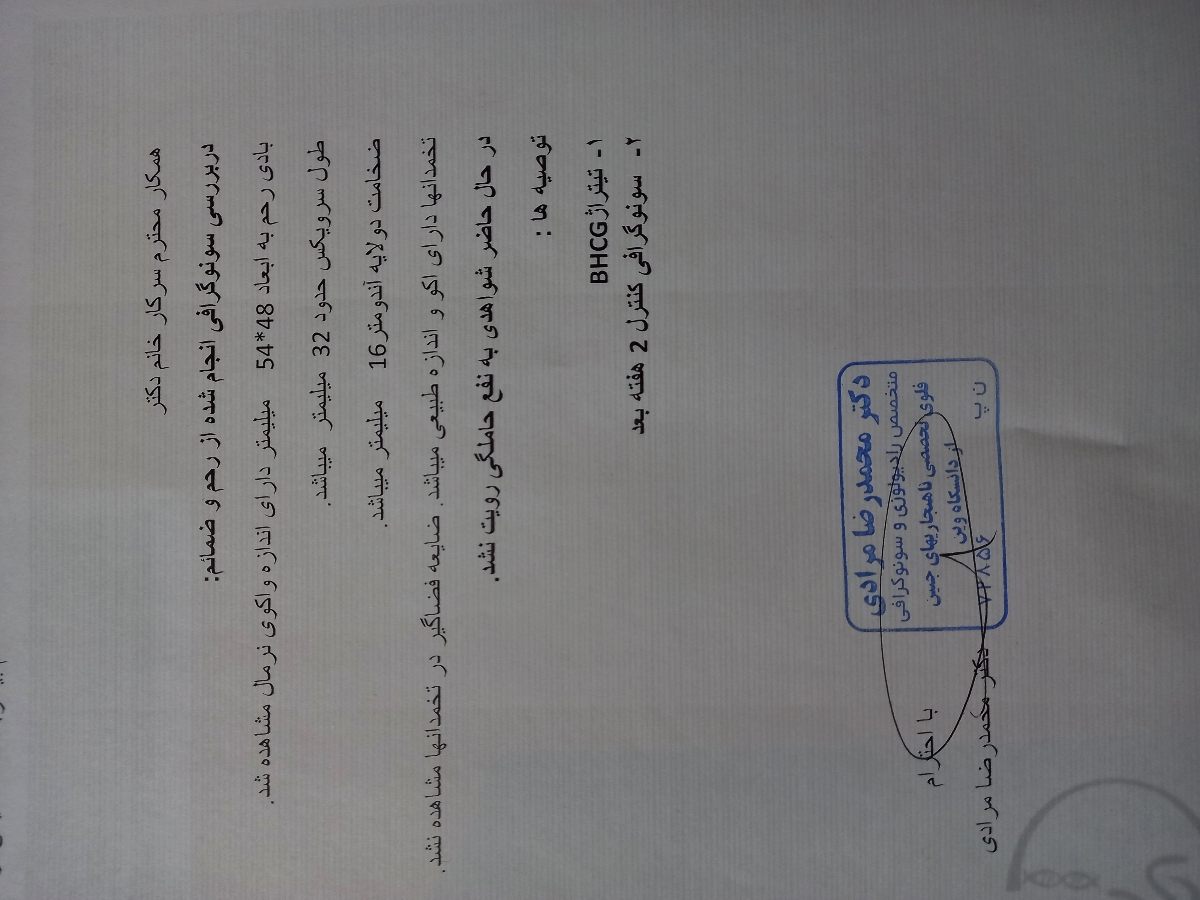 همکار محترم سرکار خانم دکتر
دربررسی سونوگرافی انجام شده از رحم و ضمائم:
بادی رحم به ابعاد 48*54 میلیمتر دارای اندازه واکوی نرمال مشاهده شد.
طول سرویکس حدود 32 میلیمتر میباشد.
ضخامت دولایه آندومتر16 میلیمتر میباشد.
تخمدانها دارای اکو و اندازه طبیعی میباشد. ضایعه فضاگیر در تخمدانها مشاهده نشد.
در حال حاضر شواهدی به نفع حاملگی رویت نشد.
توصیه ها :
۱- تیتراژBHCG
۲- سونوگرافی کنترل 2 هفته بعد
دکتر محمدرضا مرادی
متخصص رادیولوژی و سونوگرافی
فلوی تخصصی ناهنجاریهای جنین
از دانشگاه وین
ن پ ۷۲۸۵۶
با احترام
دکتر محمدرضا مرادی